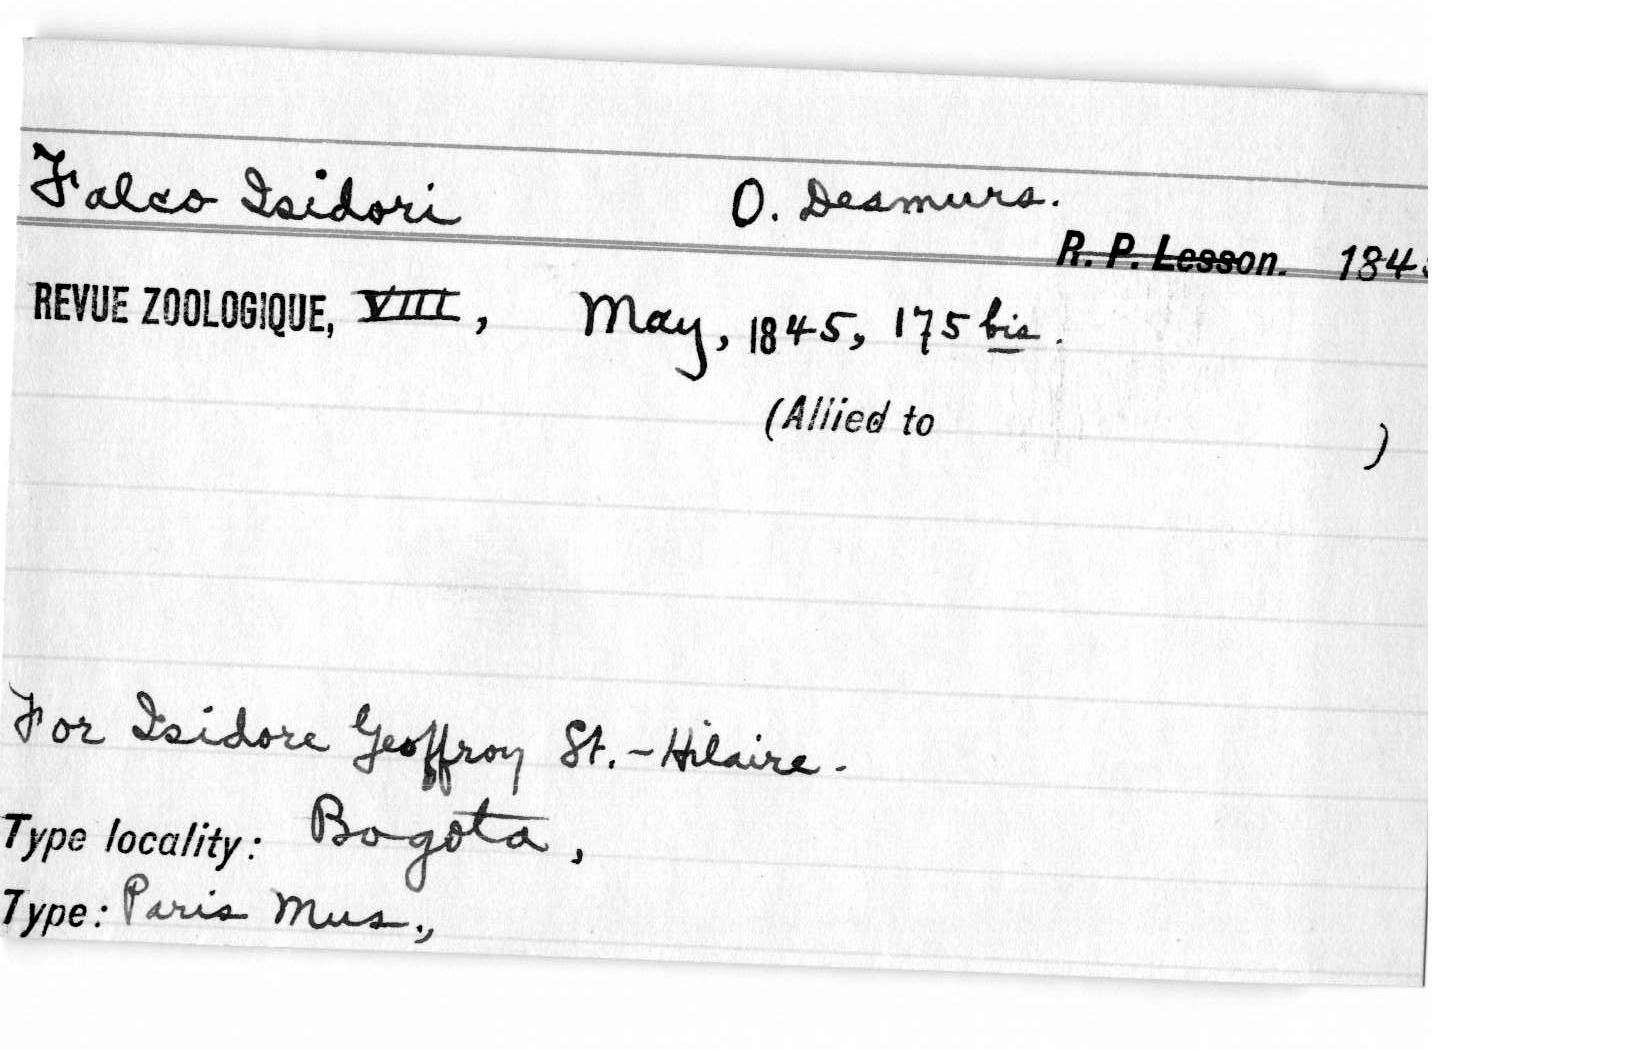 Falco Isidori O. Desmurs.
R. P. Lesson. 184
REVUE ZOOLOGIQUE, VIII, May, 1845, 175 bis.
(Allied to )
For Isidore Geoffroy St.-Hilaire.
Type locality: Bogota,
Type: Paris Mus.,